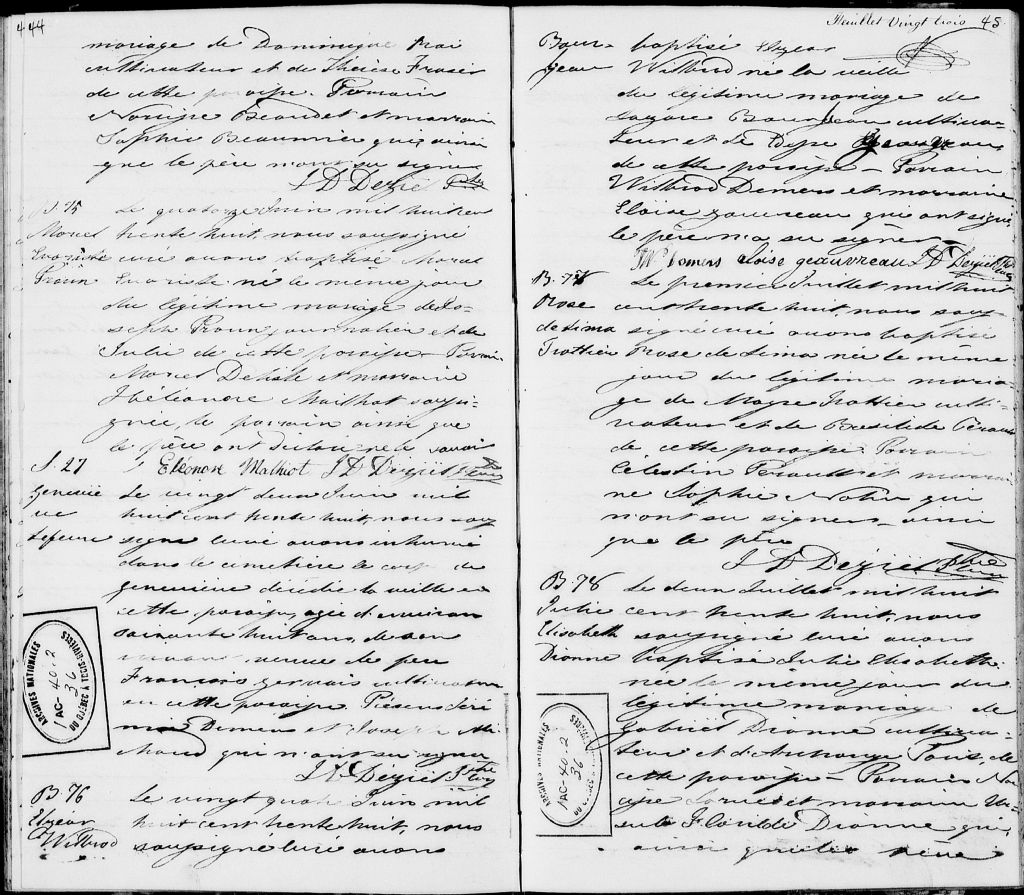 444
mariage de Dominique
cultivateur et de Thérèse Fraser
de cette paroisse. Parrain
Narcisse Beaudet et marraine
Sophie qui ainsi
que le père n'ont su signer
J D Déziel Ptre
B. 75
Marcel
Evariste
Le quatorze Juin mil huit cent
trente huit, nous soussigné
curé avons baptisé Marcel
Evariste né le même jour
du légitime mariage de Jo-
seph journalier et de
Julie de cette paroisse Parrain
Marcel Delisle et marraine
Eléonore Mailhot soussi-
gnée, le parrain ainsi que
le père ont déclaré ne le savoir
Eléonore Mathiot J D Déziel Ptre
S. 27
Genevie
ve
Lefebvre
Le vingt deux Juin mil
huit cent trente huit, nous sous
signé curé avons inhumé
dans le cimetière le corps de
geneviève décédée la veille en
cette paroisse, agée d'environ
soixante huit ans, de son
vivant veuve de feu
François germain cultivateur
en cette paroisse. Présens
Demers et Joseph
qui n'ont su signer
J D Déziel Ptre
B. 76
Elzear
Wilbrod
Le vingt quatre Juin mil
huit cent trente huit, nous
soussigné curé avons
ARCHIVES NATIONALES
AC-40-2
36
DU QUEBEC A TROIS-RIVIERES
Feuillet Vingt trois 45
Bour-
geau
baptisé Elzear
Wilbrod né la veille
du légitime mariage de
cultiva-
teur et de
de cette paroisse - Parrain
Wilbrod Demers et marraine
Eloise gauvreau qui ont signé,
le père n'a su signer
W Demers Eloise geauvreau J D Déziel Ptre
B. 77
Rose
de Lima
Trottier
Le premier Juillet mil huit
cent trente huit nous sous-
signé curé avons baptisé
Rose de Lima née le même
jour du légitime maria-
ge de Moyse Trottier culti-
vateur et de
de cette paroisse Parrain
Célestin Perault et marrai
ne Sophie qui
n'ont su signer - ainsi
que le père
J D Déziel Ptre
B. 78
Julie
Elisabeth
Dionne
Le deux Juillet mil huit
cent trente huit, nous
soussigné curé avons
baptisé Julie Elisabeth
née le même jour du
légitime mariage de
Gabriel Dionne cultiva-
teur et d'
cette paroisse - Parrain Nar
cisse et marraine Ur
sule Dionne qui
ainsi que le père
ARCHIVES NATIONALES
AC-40-2
36
DU QUEBEC A TROIS-RIVIERES